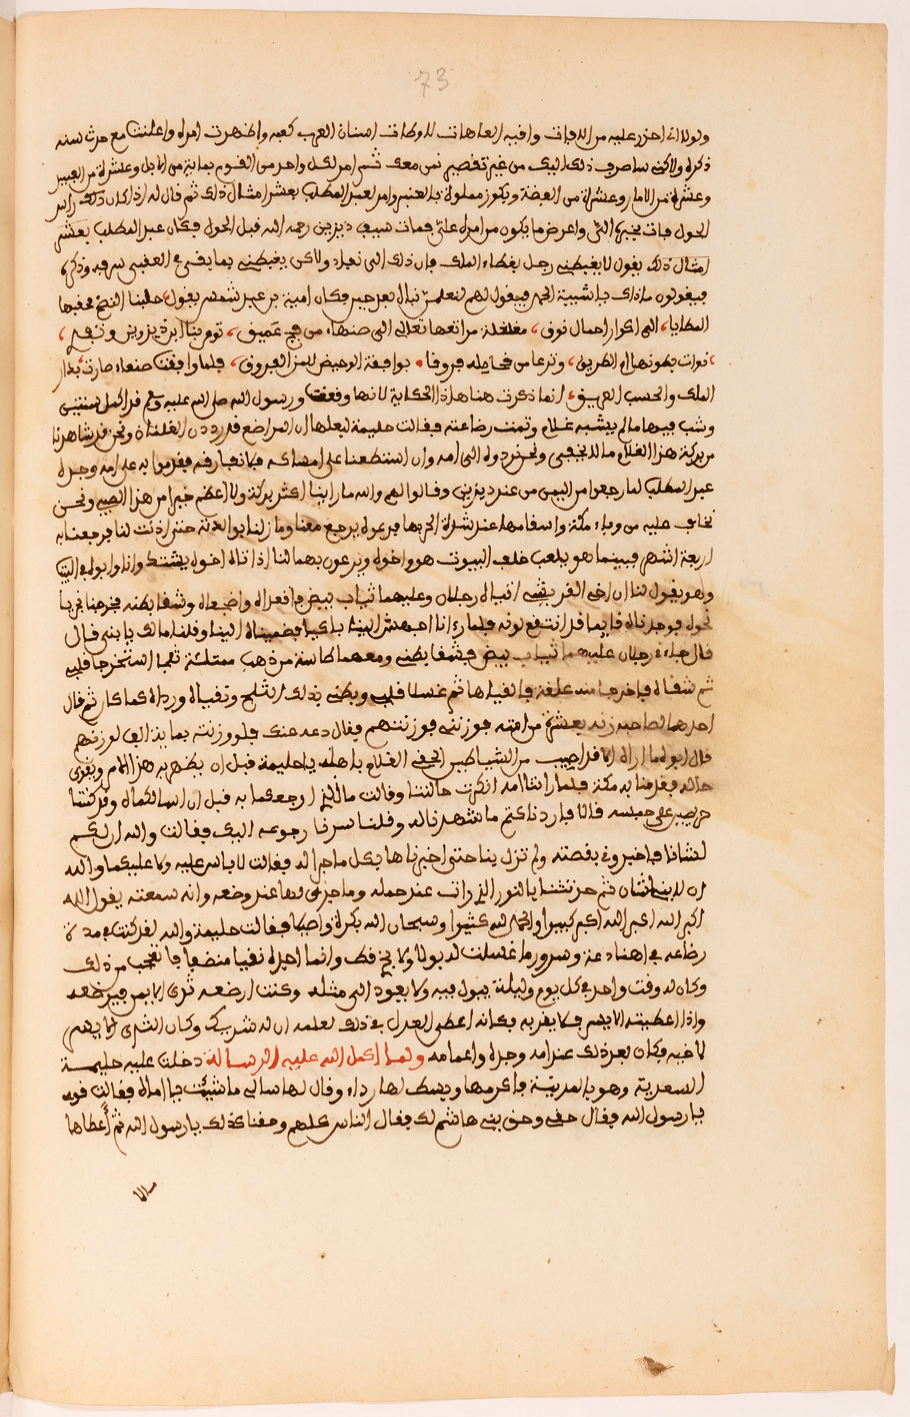 73
ولولا اني احذر عليه من الافات واقيه العاهات للاوطات اسنان العرب كعبه واظهرت امره واعلنت مع حدث سنه
ذكره ولاكني صارف ذلك اليك من غير تقصير فمن معك ثم امر لكل واحد من القوم بماية من الابل وعشرة من العبيد
وعشرة من الاماء وعشرة من الفضة وبكوز مملوة بالعنبر وامر لعبد المطلب بعشر امثال ذلك ثم قال له اذا كان ذلك راس
الحول فات بخبره الي واعرض ما يكون من امره علي فمات سيف ذي يزن رحمه الله قبل الحول فكان عبد المطلب بعشر
امثال ذلك يقول لا يغبطني رجل بعطاء الملك فان ذلك الى نفاد ولاكن يغبطني بما يبقى في العقبى شرفه وذكره
فيقولون ما ذاك يا شيبة الحمد فيقول لهم لتعلمن نبأه بعد حين فكان امية بن عبد شمس يقول جلبنا النصح محقبها
المطايا الى اكوار اجمال نوق مغلغلة مراتعها تعالى الى صنعاء من فج عميق تؤم بنا ابن ذي يزن وتفري
ذوات بطونها ام الطريق وترعى من مخايله فروقا بواقفة الوميض الى البروق فلما وافقت صنعاء صارت بدار
الملك والحسب العريق انما ذكرت هنا هذا الحكاية لانها وقعت ورسول الله صلى الله عليه وسلم قد اكمل سنتين
وشب فيهما ما لم يشبه غلام وتمت رضاعته فقالت حليمة لبعلها ان المراضع قد رددن الغلمان ونحن قد شاهدنا
من بركة هذا الغلام ما لا يخفى ونحن نرده الى امه وان استطعنا على امساكه فما نفارقه فقدموا به على امه وجده
عبد المطلب لما رجعوا من اليمن من عند ذي يزن وقالوا لهم والله ما راينا اكثر بركة ولا اعظم خيرا من هذا الصبي ونحن
نخاف عليه من وباء مكة واسقامها عند شدة الحر بها فدعوه يرجع معنا وما زلنا بوالدته حتى اذنت لنا فرجعنا به
اربعة اشهر فبينما هو يلعب خلف البيوت هو واخوه ويرعون بهما لنا اذ اتاه اخوه يشتد وانا وابوه في البيت
وهو يقول لنا ان اخي القريشي اتياه رجلان وعليهما ثياب بيض فافعداه واضجعاه وشقا بطنه فخرجنا نحريا
نحوه فوجدناه قايما قد انتقع لونه فلما رءانا اجهش الينا باكيا فضمیناه الينا وقلنا مالك يا بني قال
قال جاءني رجلان عليهما ثياب بيض فشقا بطني ومعهما طاسة من ذهب ممتلئة ثلجا استخرجا قلبي
ثم شقاه فاخرجا منه علقة فالقياها ثم غسلا قلبي وبطني بذلك الثلج ونقياه ورداه كما كان ثم قال
احدهما لصاحبه زنه بعشرة من امته فوزنني فوزنتهم فقال دعه عنك فلو وزنته بماية الف لوزنهم
قال ابوه ما اراه الا قد اصيب من الشياطين الحقي الغلام باهله يا حليمة قبل ان يظهر به هذا الامر ويقوى
حاله فقدمنا به مكة فلما راتنا امه انكرت حالتنا وقالت ما لكم ارجعكما به قبل ان اسالكماه وقد كنتما
حريصين على حبسه قالا فاردنا كتم ما شهدنا له وقلنا سرنا رجوعه اليك فقالت والله ان لكم
لشانا فاخبروني بقصته ولم تزل بنا حتى اخبرناها بكل ما جرا له فقالت لا باس عليه ولا عليكما والله
ان لابني لشان ثم حدثتنا بالنور الذي رات عند حمله وما جرى لها عند وضعه وانه سمعته يقول الله
اكبر الله اكبر الله اكبر كبيرا والحمد لله كثيرا وسبحان الله بكرة واصيلا فقالت حليمة والله لقد كنت في مدة
رضاعه في اهنا دعة وسرور ما غسلت له بولا ولا نج قط وانما اجده نقيا منضفا فاتعجب من ذلك
وكان له وقت واحد في كل يوم وليلة يبول فيه ولا يعود الى مثله وكنت ارضعه ثدي الايمن فيرضعه
واذا اعطيته الايسر فلا يقربه فكانه اعطي العدل في ذلك لعلمه ان له شريك وكان الثدي الايسر
لاخيه فكان بعد ذلك عند امه وجده واعمامه ولما اكمل الله عليه الرسالة دخلت عليه حليمة
السعدية وهو بالمدينة فاكرمها وبسط لها رداءه وقال لها سالي ما شئت يا اماه فقالت قومي
يا رسول الله فقال حقي وحق بني هاشم لك فقال الناس كلهم وحقنا كذلك يا رسول الله ثم اعطاها